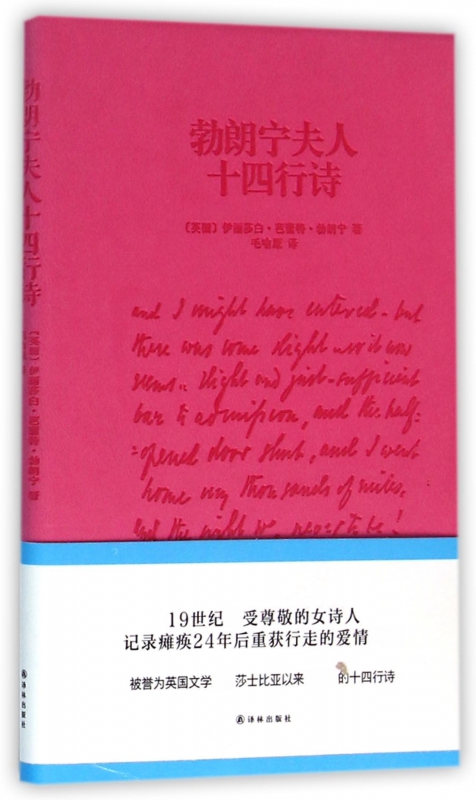 勃朗宁夫人
十四行诗
〔英国〕伊丽莎白·芭蕾特·勃朗宁 著
毛喻原 译
and I might have entered - but
there was some slight - so it now
seems - slight and just-sufficient
bar to admission, and the half-
opened door shut, and I went
home my thousands of miles,
and the sight was never to be!
19世纪 受尊敬的女诗人
记录瘫痪24年后重获行走的爱情
被誉为英国文学 莎士比亚以来 的十四行诗
译林出版社
勃朗宁夫人十四行诗
〔英国〕伊丽莎白·芭蕾特·勃朗宁 著